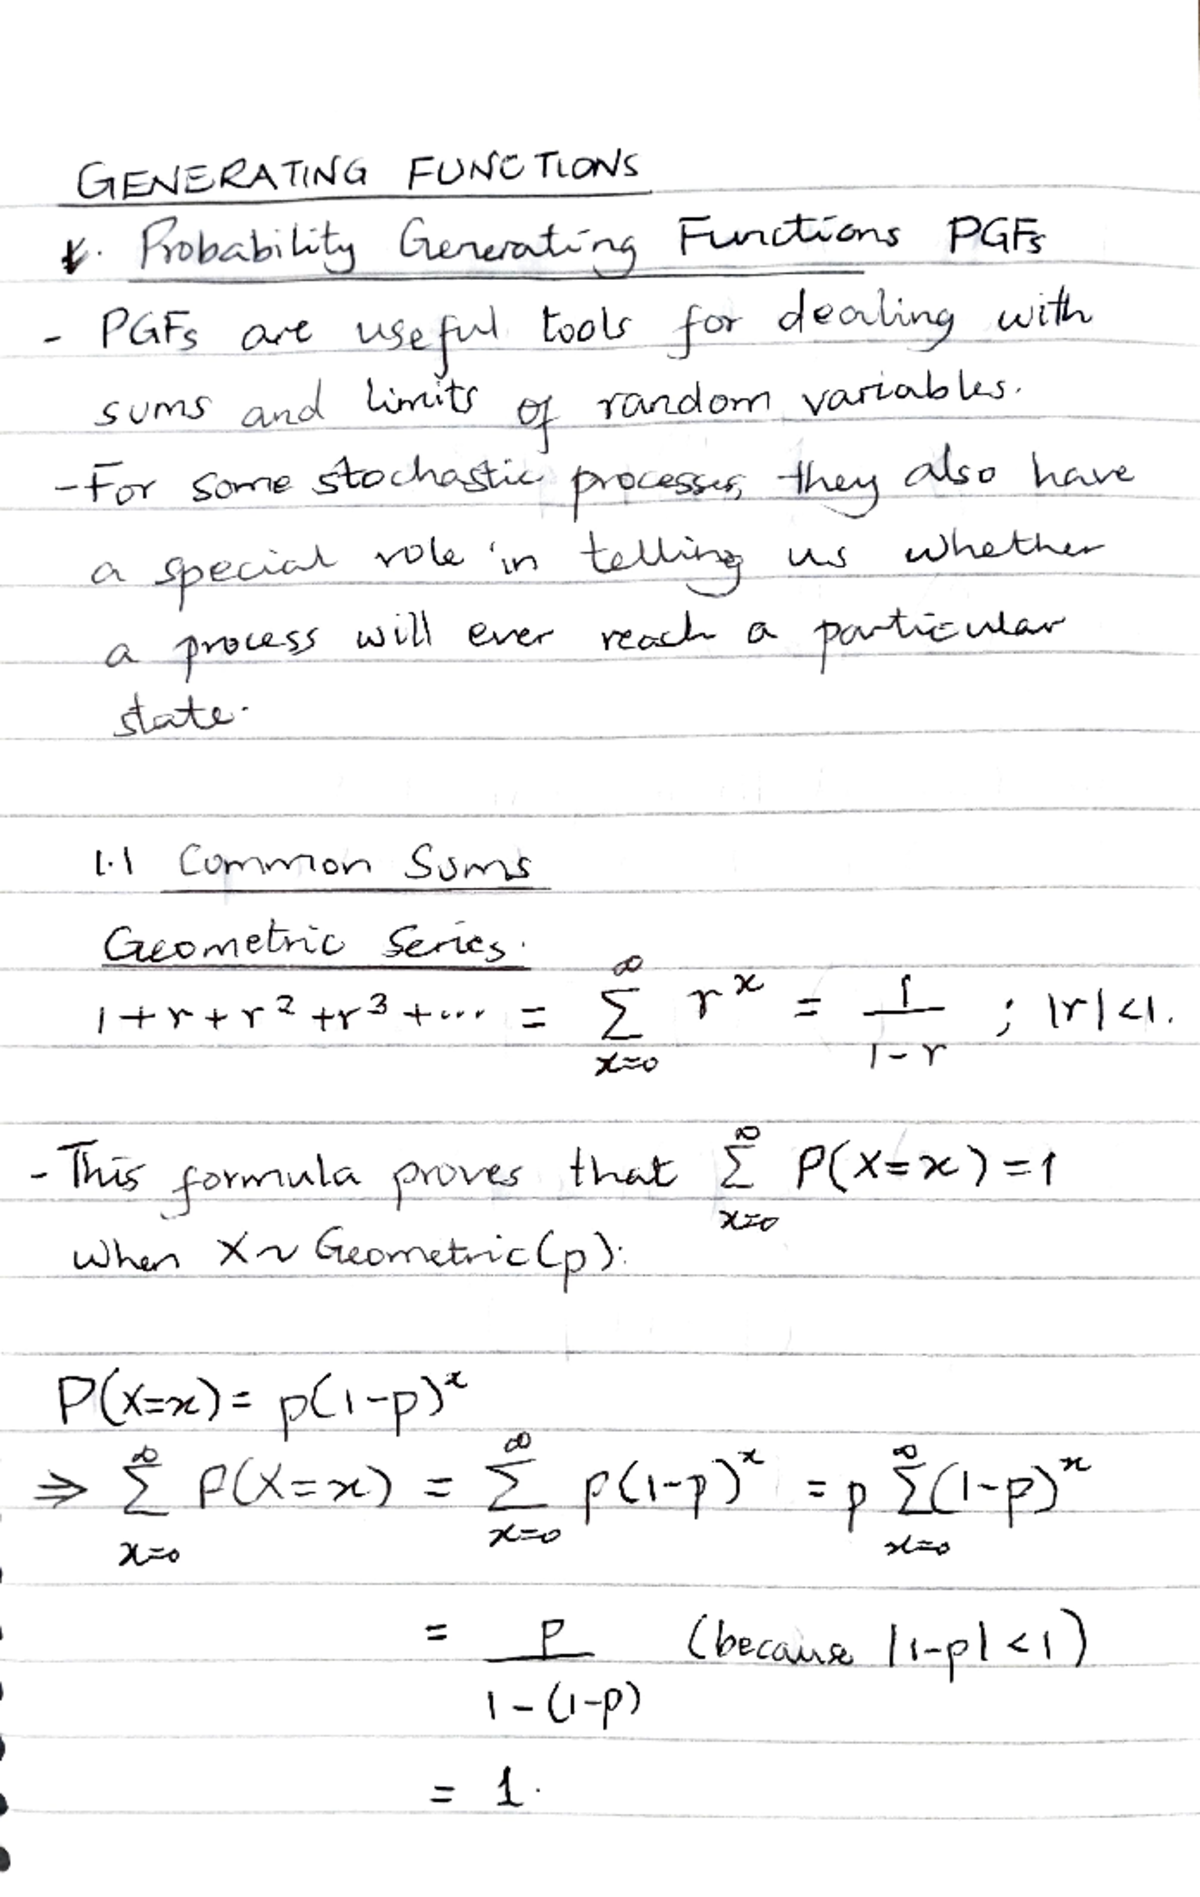 GENERATING FUNCTIONS
1. Probability Generating Functions PGFs
- PGFs are useful tools for dealing with
sums and limits of random variables.
- For some stochastic processes, they also have
a special role in telling us whether
a process will ever reach a particular
state.
1.1 Common Sums
Geometric Series.
1 + r + r² + r³ + ... = ∑_{x=0}^{∞} r^x = 1/(1-r) ; |r|<1.
- This formula proves that ∑_{x=0}^{∞} P(X=x)=1
when X~ Geometric(p):
P(X=x) = p(1-p)^x
⇒ ∑_{x=0}^{∞} P(X=x) = ∑_{x=0}^{∞} p(1-p)^x = p ∑_{x=0}^{∞} (1-p)^x
= p/(1-(1-p)) (because |1-p|<1)
= 1.